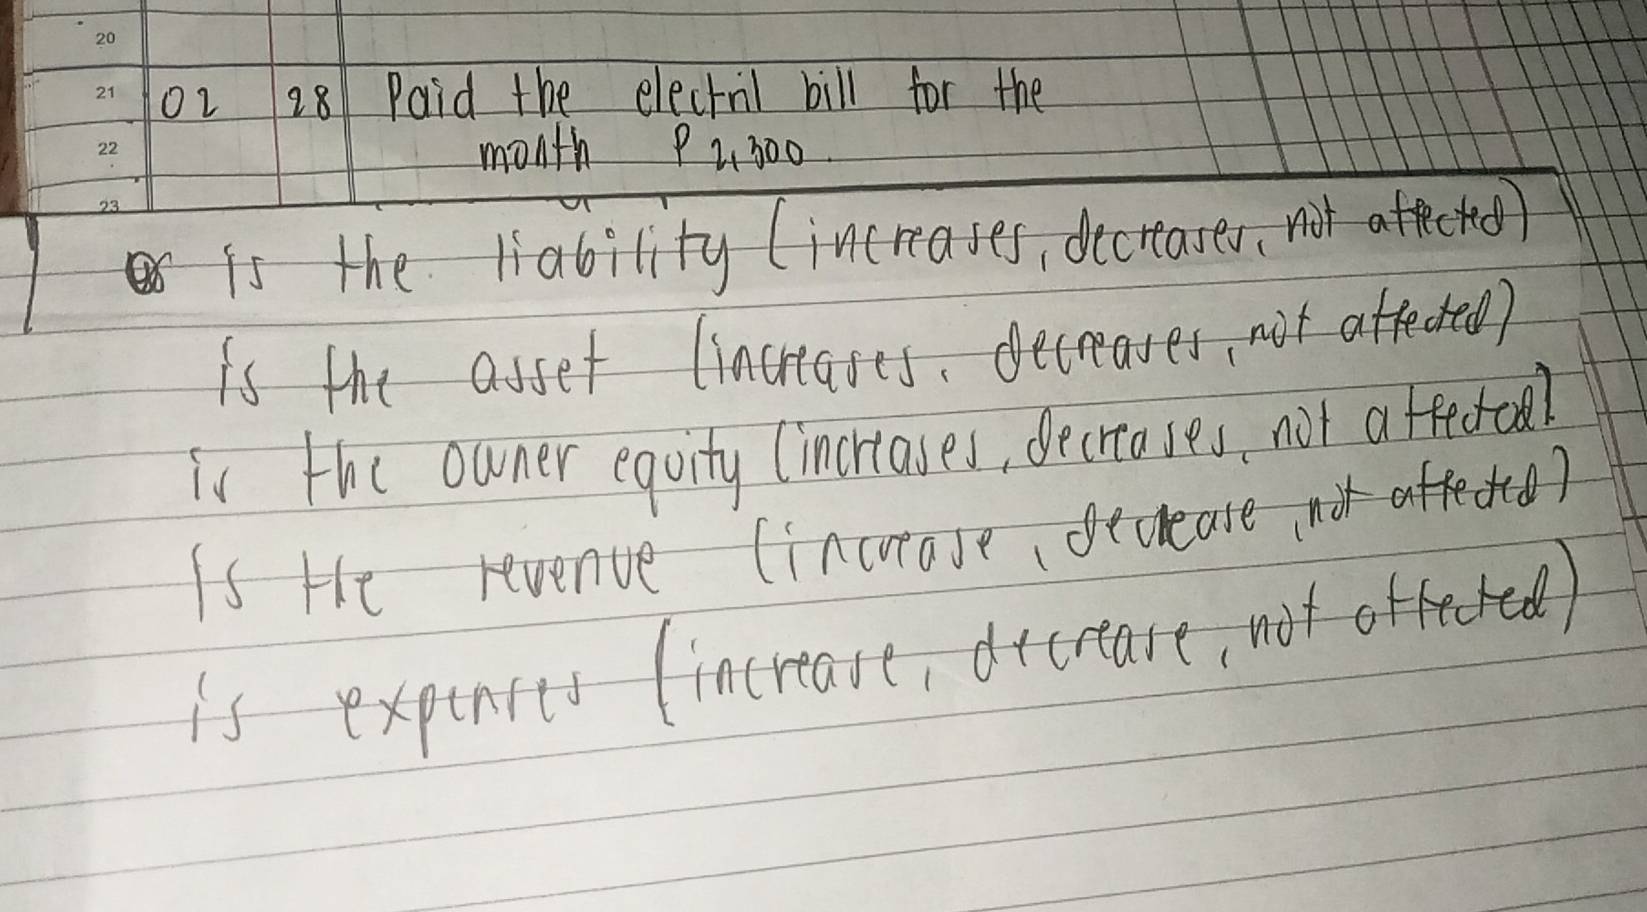 20
21 02 28 Paid the electril bill for the
22 month ₱ 2,300
23
is the liability (increases, decreases, not affected)
is the asset (increases, decreases, not affected)
is the owner equity (increases, decreases, not affected)
is the revenue (increase, decrease, not affected)
is expenses (increase, decrease, not affected)